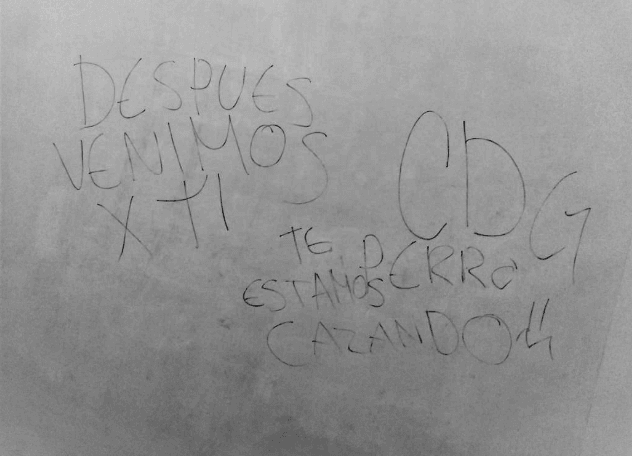 DESPUES
VENIMOS
X TI
CDG
TE
PERRO
ESTAMOS
CAZANDO